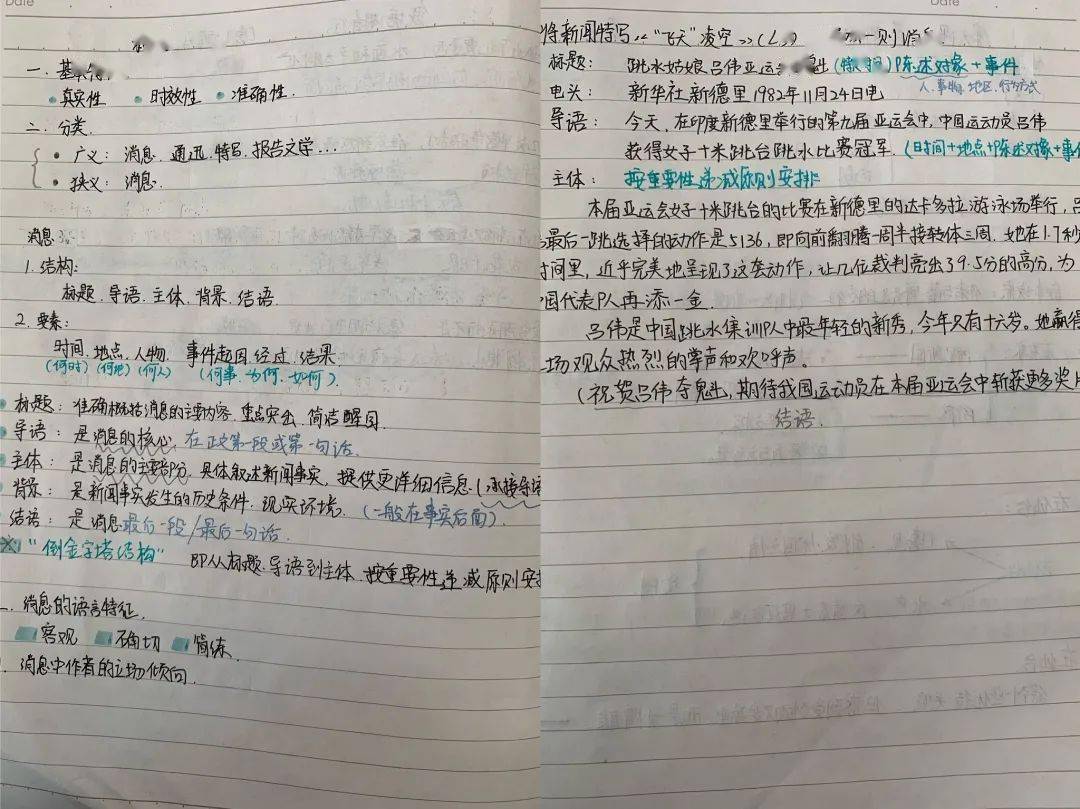 Date
一. 基本
• 真实性 • 时效性 • 准确性.
二. 分类.
• 广义: 消息. 通迅. 特写. 报告文学...
• 狭义: 消息.
消息
1. 结构:
标题. 导语. 主体. 背景. 结语.
2. 要素:
时间. 地点. 人物. 事件起因. 经过. 结果
(何时) (何地) (何人) (何事. 为何. 如何).
标题: 准确概括消息的主要内容. 重点突出. 简洁醒目.
导语: 是消息的核心. 在正文第一段或第一句话.
主体: 是消息的主要部分. 具体叙述新闻事实, 提供更详细信息 (承接导语
背景: 是新闻事实发生的历史条件. 现实环境. (一般在事实后面).
结语: 是消息最后一段/最后一句话.
※ "倒金字塔结构" 即从标题. 导语到主体. 按重要性递减原则安排
消息的语言特征.
客观 确切 简练.
消息中作者的立场倾向.
Date
将新闻特写《"飞天"凌空》 一则消
标题: 跳水姑娘吕伟亚运 陈述对象+事件
人.事物.地区.行为方式
电头: 新华社新德里1982年11月24日电
导语: 今天, 在印度新德里举行的第九届亚运会中, 中国运动员吕伟
获得女子十米跳台跳水比赛冠军. (时间+地点+陈述对象+事件
主体: 按重要性递减原则安排
本届亚运会女子十米跳台的比赛在新德里的达卡多拉游泳场举行, 吕
最后一跳选择的动作是5136, 即向前翻腾一周半接转体三周. 她在1.7秒
时间里, 近乎完美地呈现了这套动作, 让几位裁判亮出了9.5分的高分, 为
国代表队再添一金.
吕伟是中国跳水集训队中最年轻的新秀, 今年只有十六岁。她赢得
场观众热烈的掌声和欢呼声。
(祝贺吕伟夺魁, 期待我国运动员在本届亚运会中斩获更多奖牌
结语.